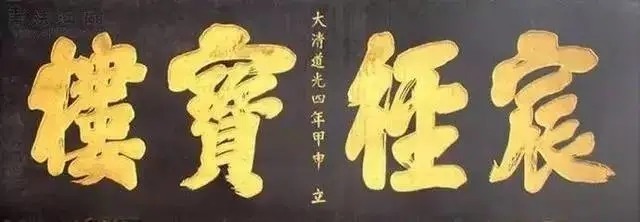 宸寶樓
大清道光四年甲申 立